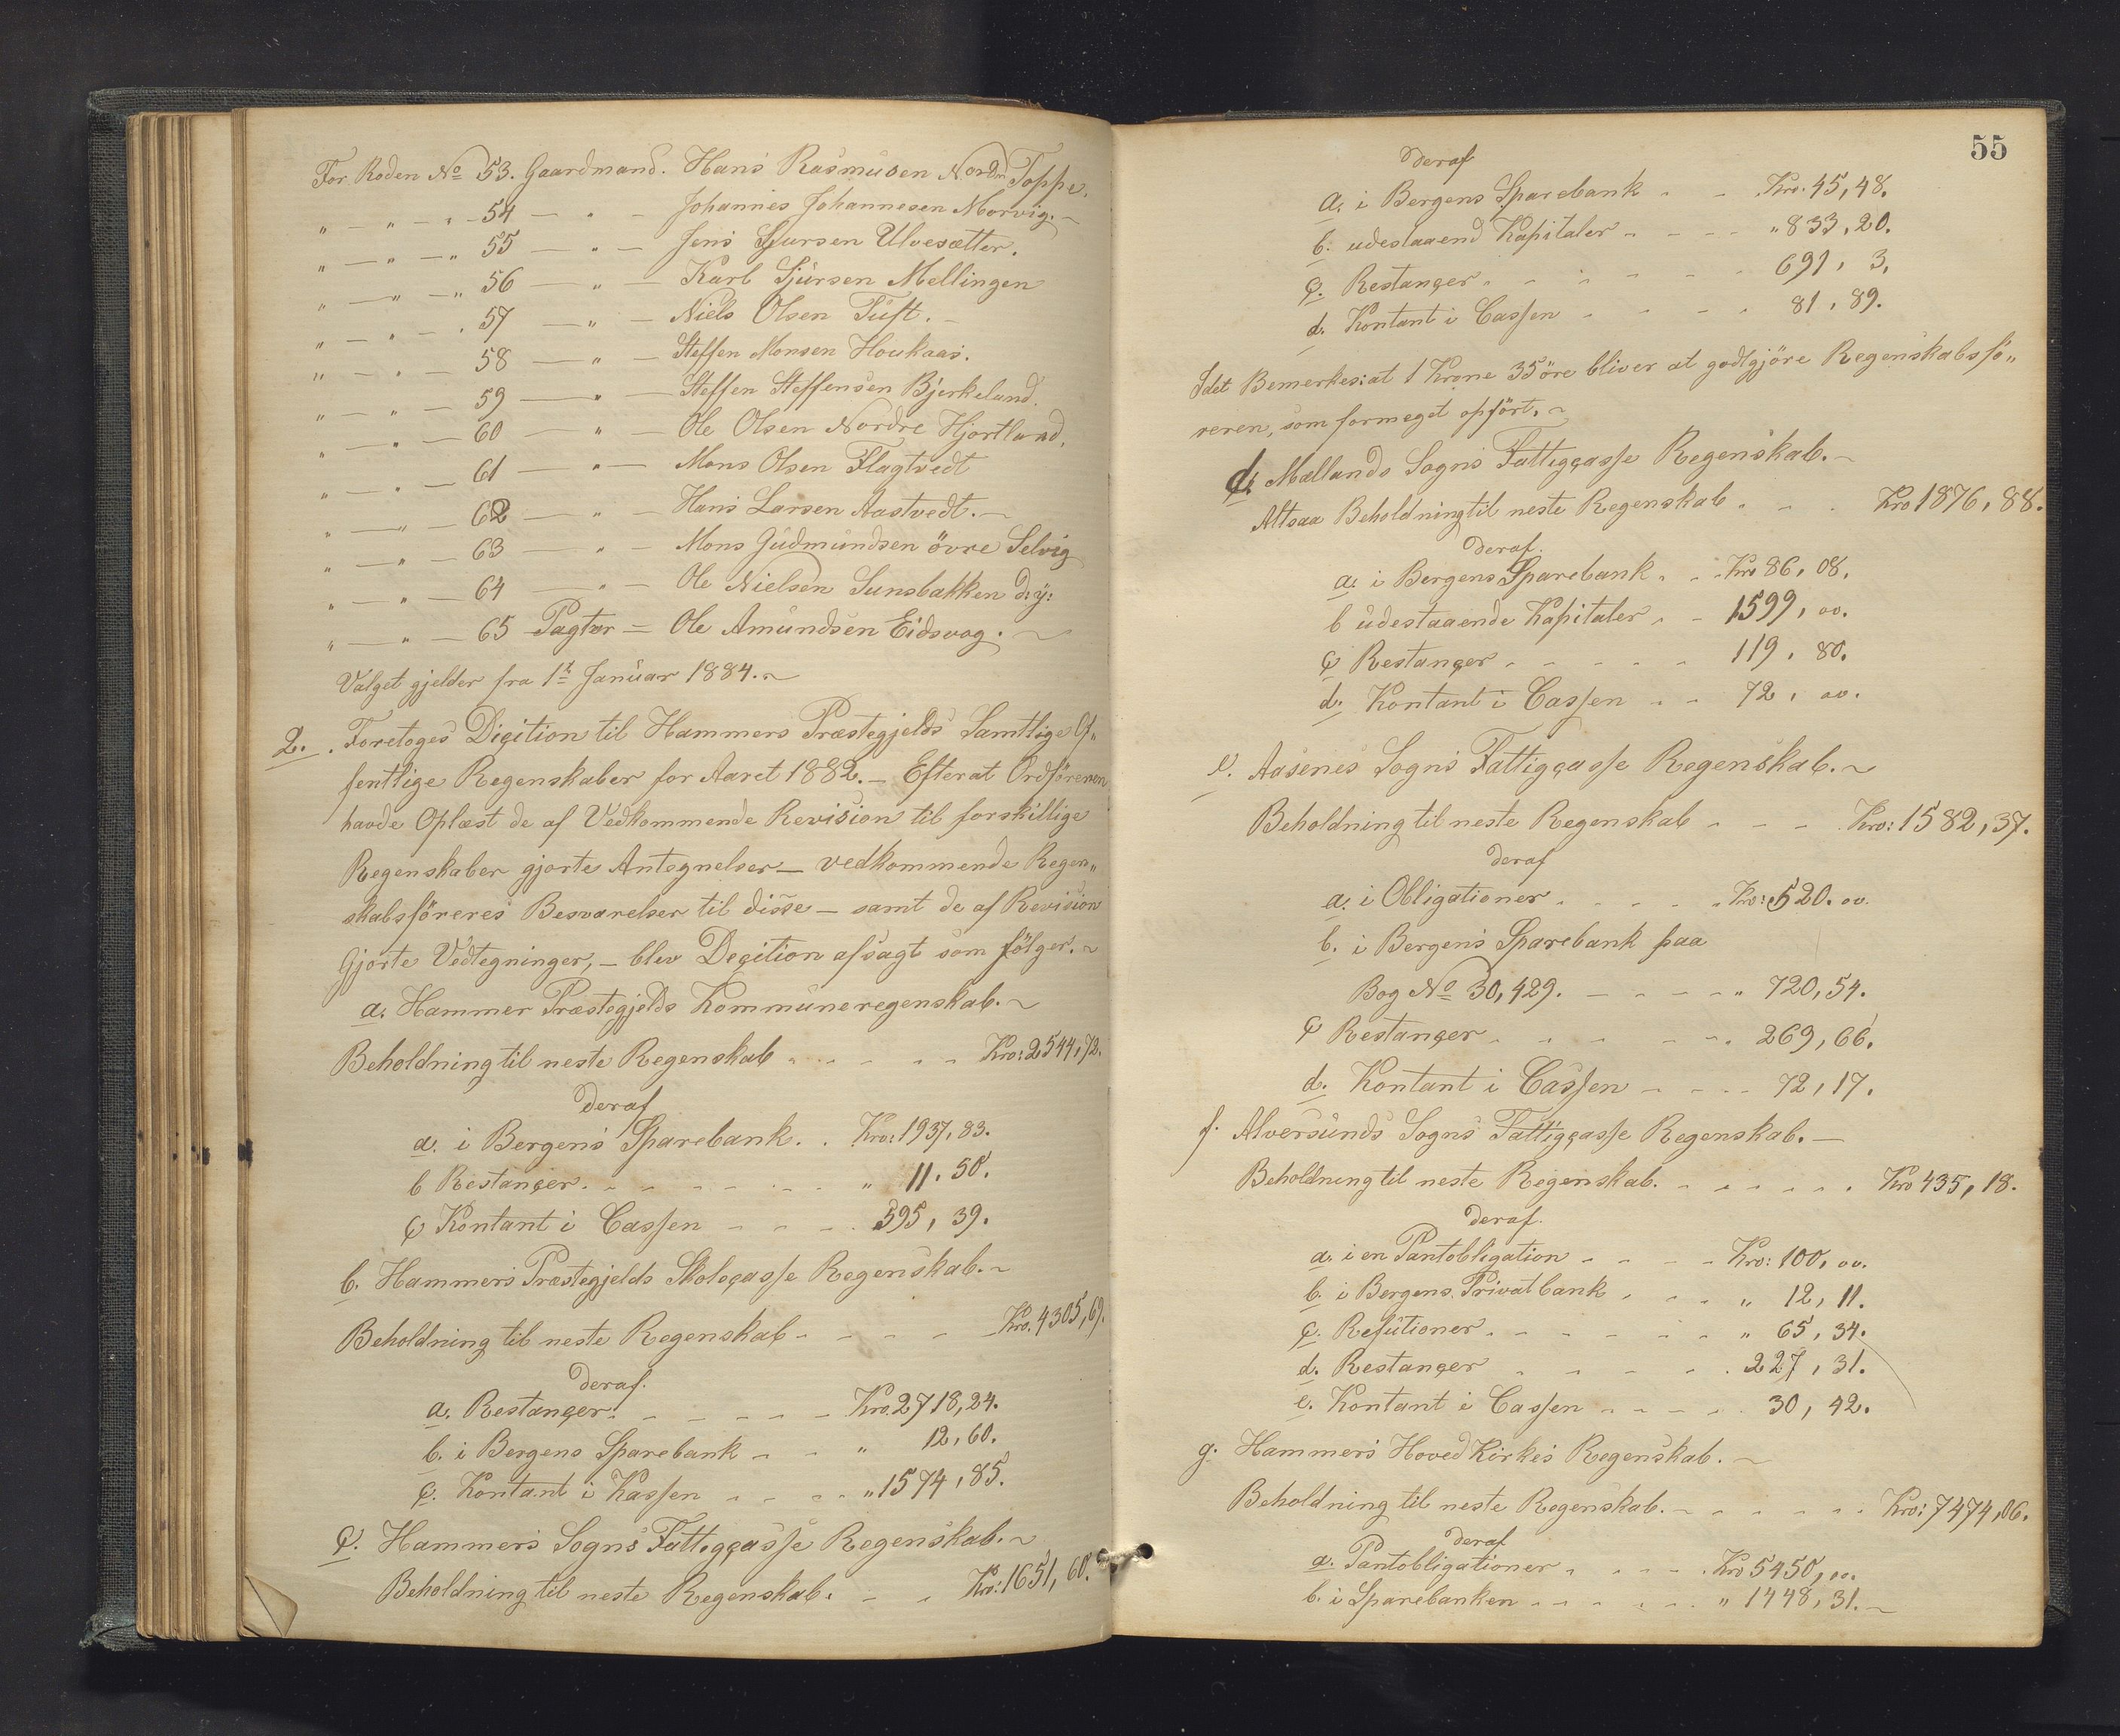 For Roden No 53. Gaardmand. Hans Rasmusen Nordre Toppe.
" — " — " — 54 — " — Johannes Johannesen Morvig. —
" — " — " 55 — " — Jens Sjursen Ulvesætter.
" — " — " 56 — " — Karl Sjürsen Mellingen
" — " — " 57 — " — Niels Olsen Tuft. —
" — " — 58 — " — Steffen Monsen Houkaas.
" — " — 59 — " — Steffen Steffensen Bjerkeland.
" — " — 60 — " — Ole Olsen Nordre Hjortland.
" — " — 61 — " — Mons Olsen Flagtvedt
" — " — 62 — " — Hans Larsen Aastvedt. —
" — " — 63 — " — Mons Gudmundsen övre Selvig
" — " — 64 — " — Ole Nielsen Tunsbakken d: y:
" — " — 65 Pagter = Ole Amundsen Eidsvog. ~
Valget gjelder fra 1st Januar 1884. ~
2. . Foretoges Diçition til Hammers Præstegjelds Samtlige Of„
fentlige Regenskaber for Aaret 1882. — Efterat Ordföreren
havde Oplæst de af Vedkommende Revision til forskillige
Regenskaber gjorte Antegnelser — vedkommende Regen„
skabsföreres Besvarelser til disse — samt de af Revision
Gjorte Vedtegninger, — blev Deçition afsagt som fölger. ~
a. Hammer Præstegjelds Kommuneregenskab. ~
Beholdning til neste Regenskab - - - - Kro: 2544,72.
deraf
a. i Bergens Sparebank. . Kro: 1937,83.
b Restançer. - - - - - " 11.50.
ç Kontant i Cassen - - - . 595, 39.
b. Hammers Præstegjelds Skoleçasse Regenskab. ~
Beholdning til neste Regenskab - - - - Kro. 4305,69.
deraf.
a. Restançer. - - - - - Kro. 2718,24.
b. i Bergens Sparebank - - " 12,60.
ç. Kontant i Kassen - - - - " 1574,85.
ç. Hammers Sogns Fattigçasse Regenskab. ~
Beholdning til neste Regenskab. - - Kro: 1651,60.
55
deraf
a. i Bergens Sparebank - - Kro. 45,48.
b. udestaaend Kapitaler - - - - " 833,20.
ç. Restançer - - - - - 691, 3.
d. Kontant i Cassen - - - - 81, 89.
Idet Bemerkes: at 1 Krone 35 öre bliver at godtgjöre Regenskabsfö„
reren, som formeget opfört. ~
d. Mællands Sogns Fattigçasse Regenskab. ~
Altsaa Beholdning til neste Regenskab . - . Kro 1876,88.
deraf.
a. i Bergens Sparebank . - Kro 86, 08.
b udestaaende Kapitaler . - 1599, oo.
ç Restançer - - - - - 119, 80.
d. Kontant i Cassen - - 72, oo.
e. Aasenes Sogns Fattigçasse Regenskab. ~
Beholdning til neste Regenskab - - - Kro: 1582,37.
deraf
a. i Obligationer - - - - Kro: 520. oo.
b. i Bergens Sparebank paa
Bog No 30,429. - - - - " 720,54.
ç Restançer - - - - - 269,66.
d. Kontant i Cassen - - - - 72,17.
f. Alversunds Sogns Fattigçasse Regenskab. —
Beholdning til neste Regenskab. - - - - - Kro 435,18.
deraf.
a. i en Pantobligation - - - - Kro: 100, oo.
b. i Bergens Privatbank - - - " 12, 11.
ç. Refutioner. - - - - - " 65, 34.
d. Restançer - - - - . 227, 31.
e. Kontant i Cassen - - - - 30, 42.
g. Hammers Hoved Kirkes Regenskab. ~
Beholdning til neste Regenskab. - - - - - Kro: 7474,06.
deraf
a. Pantobligationer - - - - Kro 5450, oo.
b. i Sparebanken - - - - - " 1448, 31. ~